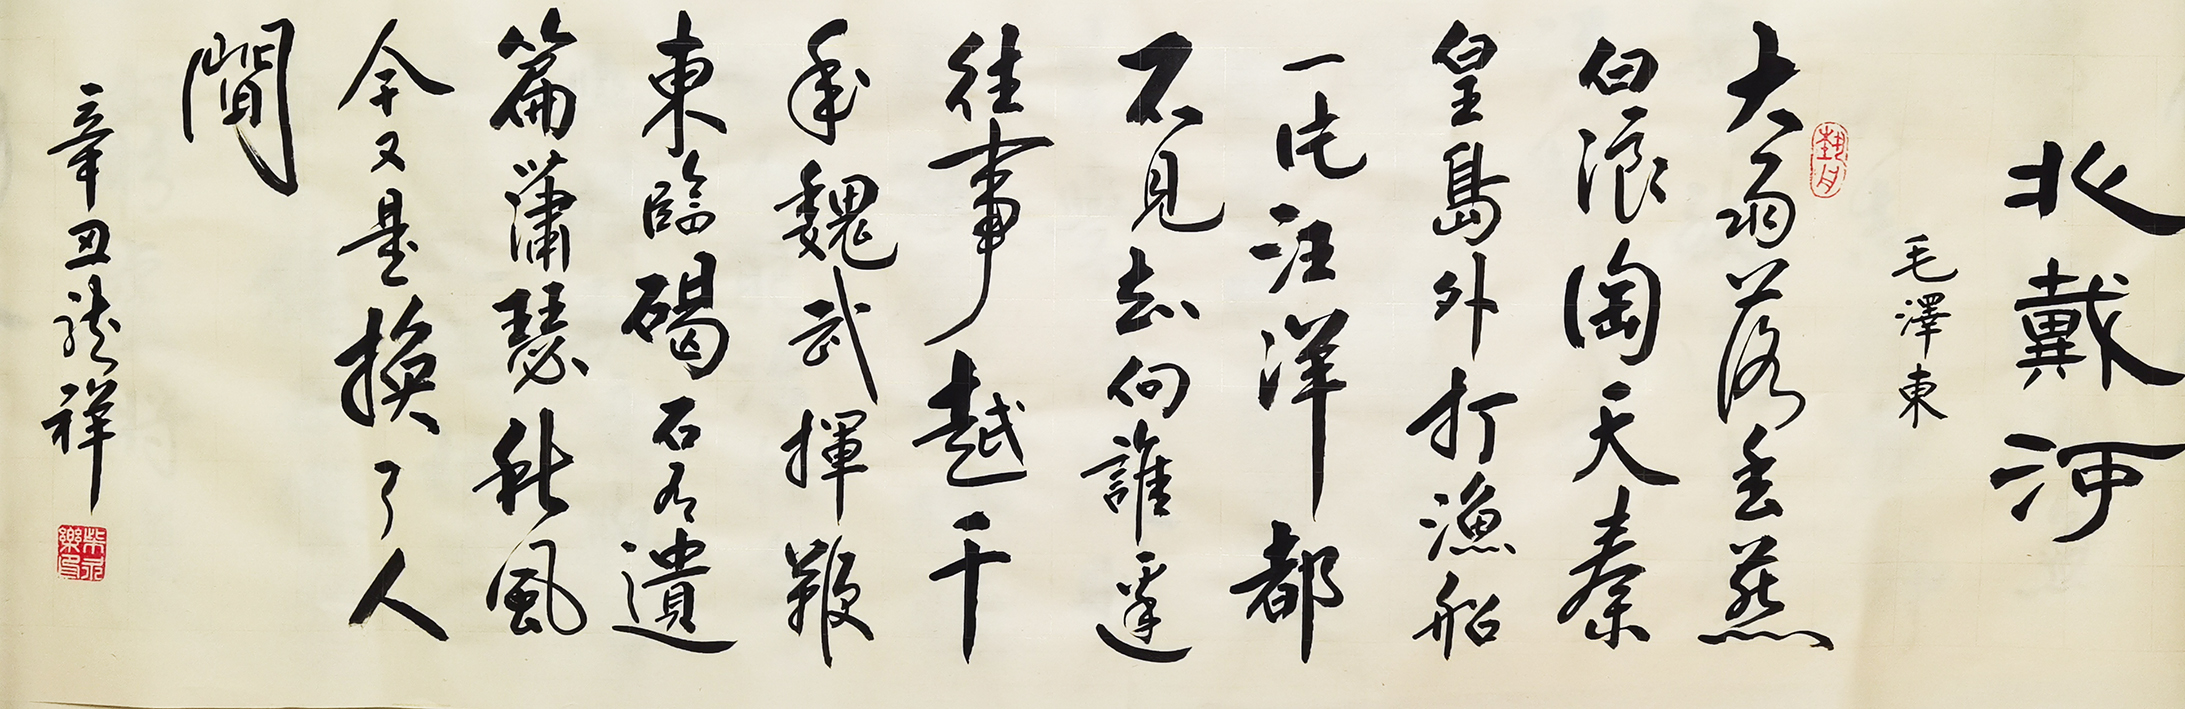 北戴河
毛澤東
大雨落幽燕
白浪滔天秦
皇島外打漁船
一片汪洋都
不見知向誰邊
往事越千
年魏武揮鞭
東臨碣石有遺
篇蕭瑟秋風
今又是換了人
間
辛丑 祥